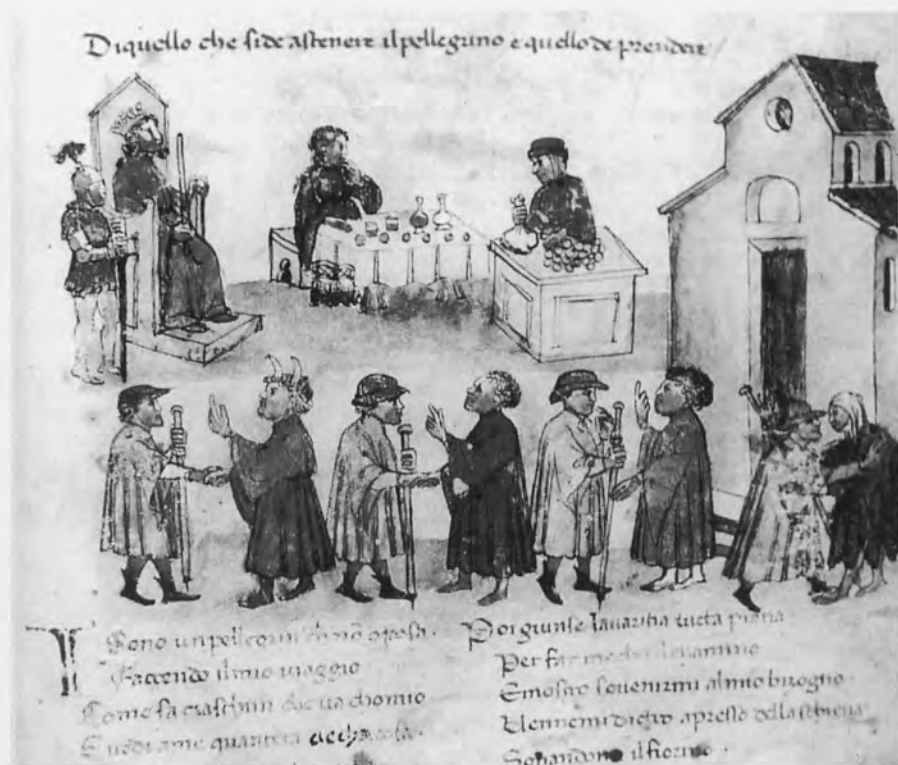 Di quello che si de astenere il pellegrino e quello de prendere
Sono un pellegrin ch non oposa
Faccendo il mio viaggio
Come fa ciaschun che va chomio
E vedrame
Poi giunse lavaritia tucta piana
Per far
E mostro sovenirmi al mio bisogno
Venne mi dietro apresso della schiena
Sonandomi il fiorino